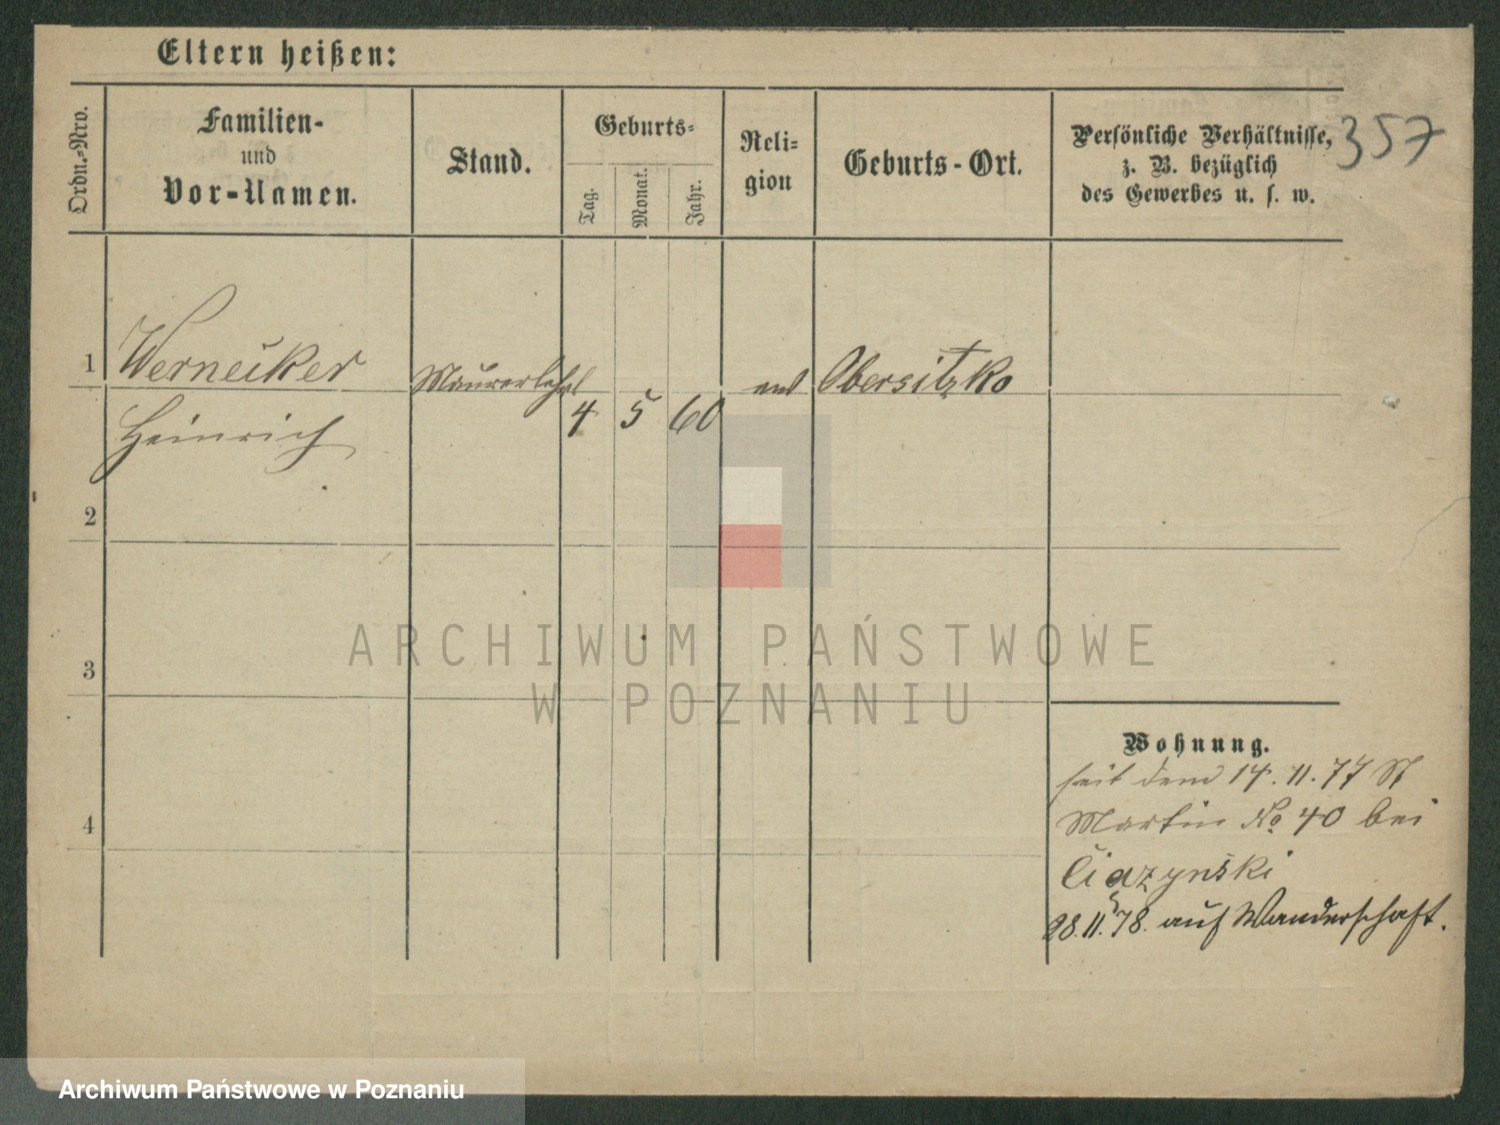 Eltern heißen:
Ordn.-Nro.
Familien-
und
Vor-Namen.
Stand.
Geburts-
Tag.
Monat.
Jahr.
Reli-
gion
Geburts-Ort.
Persönliche Verhältnisse,
z. B. bezüglich
des Gewerbes u. s. w.
357
1
Werneuker
Heinrich
Maurerlehrl
4
5
60
Obersitzko
2
3
4
Wohnung.
seit dem 14.11.77 St
Martin No 40 bei
28.11.78. auf Wanderschaft.
ARCHIWUM PAŃSTWOWE
W POZNANIU
Archiwum Państwowe w Poznaniu